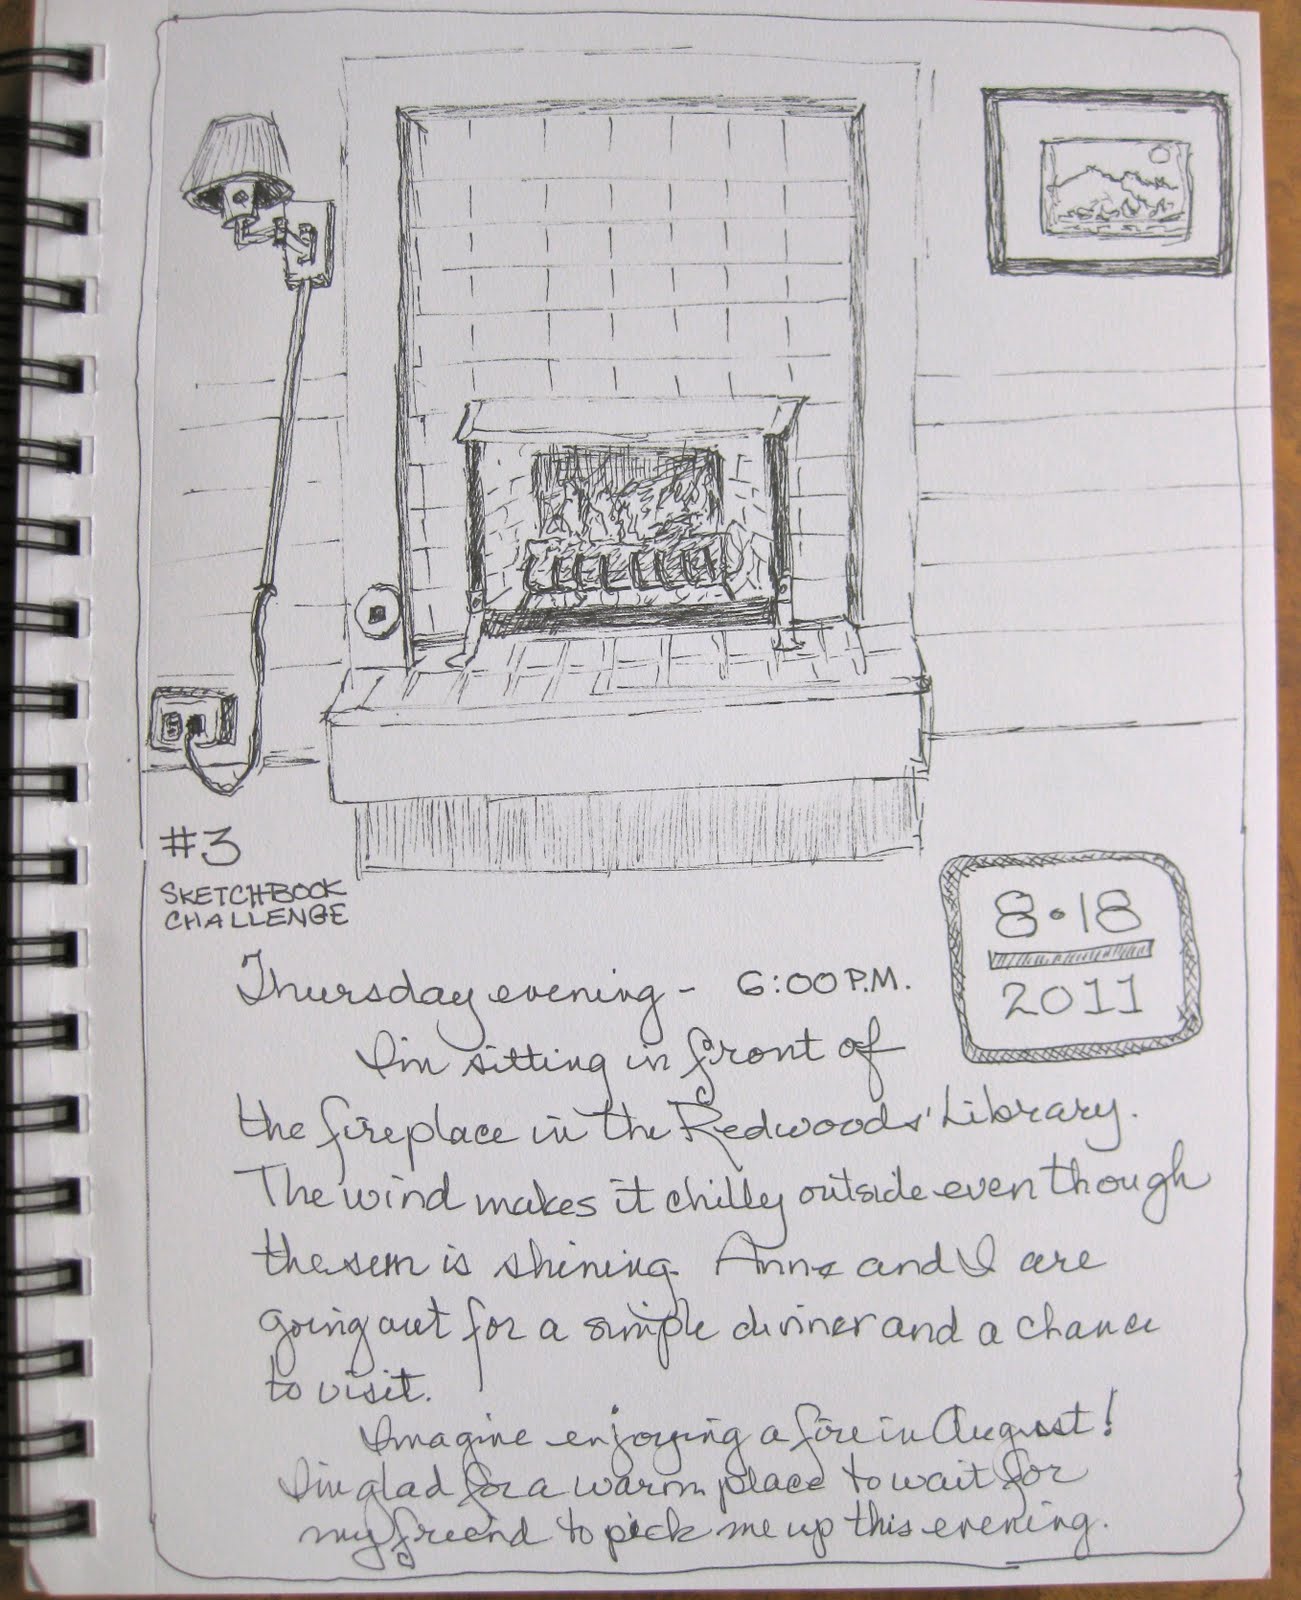 #3
SKETCHBOOK
CHALLENGE
8•18
2011
Thursday evening - 6:00 P.M.
I'm sitting in front of
the fireplace in the Redwoods' Library.
The wind makes it chilly outside even though
the sun is shining. Anne and I are
going out for a simple dinner and a chance
to visit.
Imagine enjoying a fire in August!
I'm glad for a warm place to wait for
my friend to pick me up this evening.